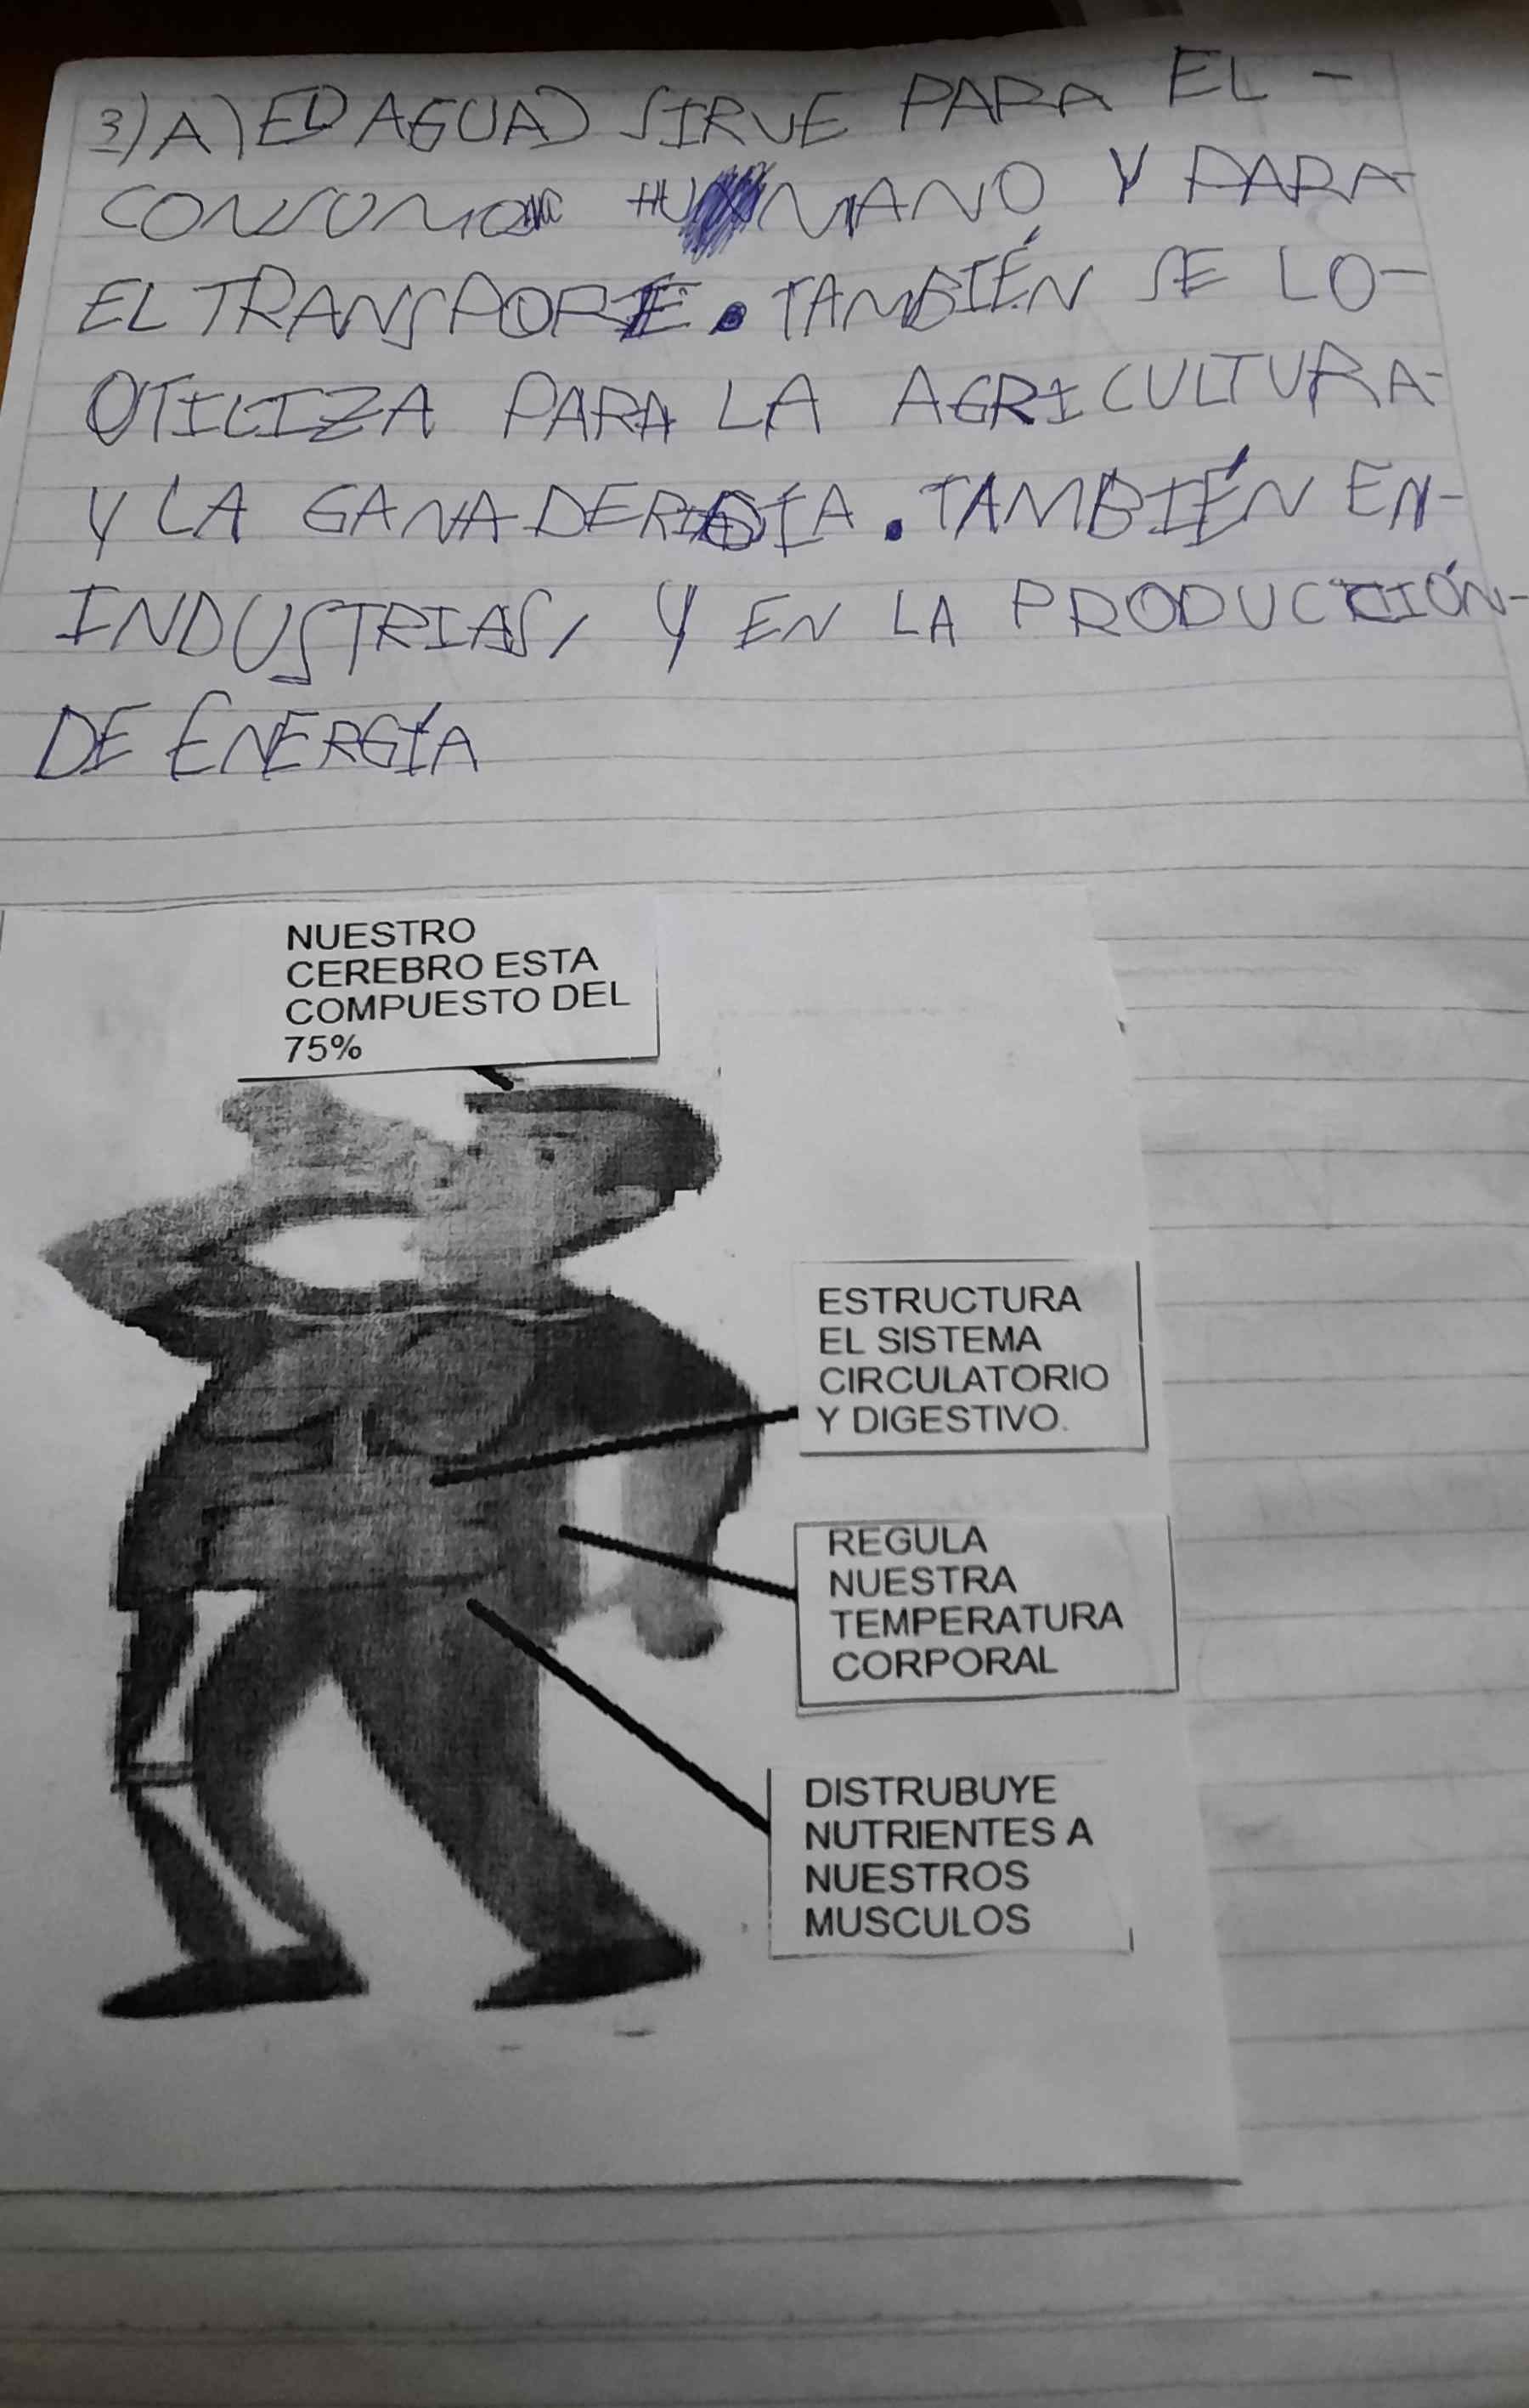 3) A) EL AGUA SIRVE PARA EL -
CONSUMO HUMANO Y PARA
EL TRANSPORTE. TAMBIÉN SE LO -
UTILIZA PARA LA AGRICULTURA -
Y LA GANADERÍA. TAMBIÉN EN -
INDUSTRIAS, Y EN LA PRODUCCIÓN -
DE ENERGÍA
NUESTRO
CEREBRO ESTA
COMPUESTO DEL
75%
ESTRUCTURA
EL SISTEMA
CIRCULATORIO
Y DIGESTIVO.
REGULA
NUESTRA
TEMPERATURA
CORPORAL
DISTRUBUYE
NUTRIENTES A
NUESTROS
MUSCULOS